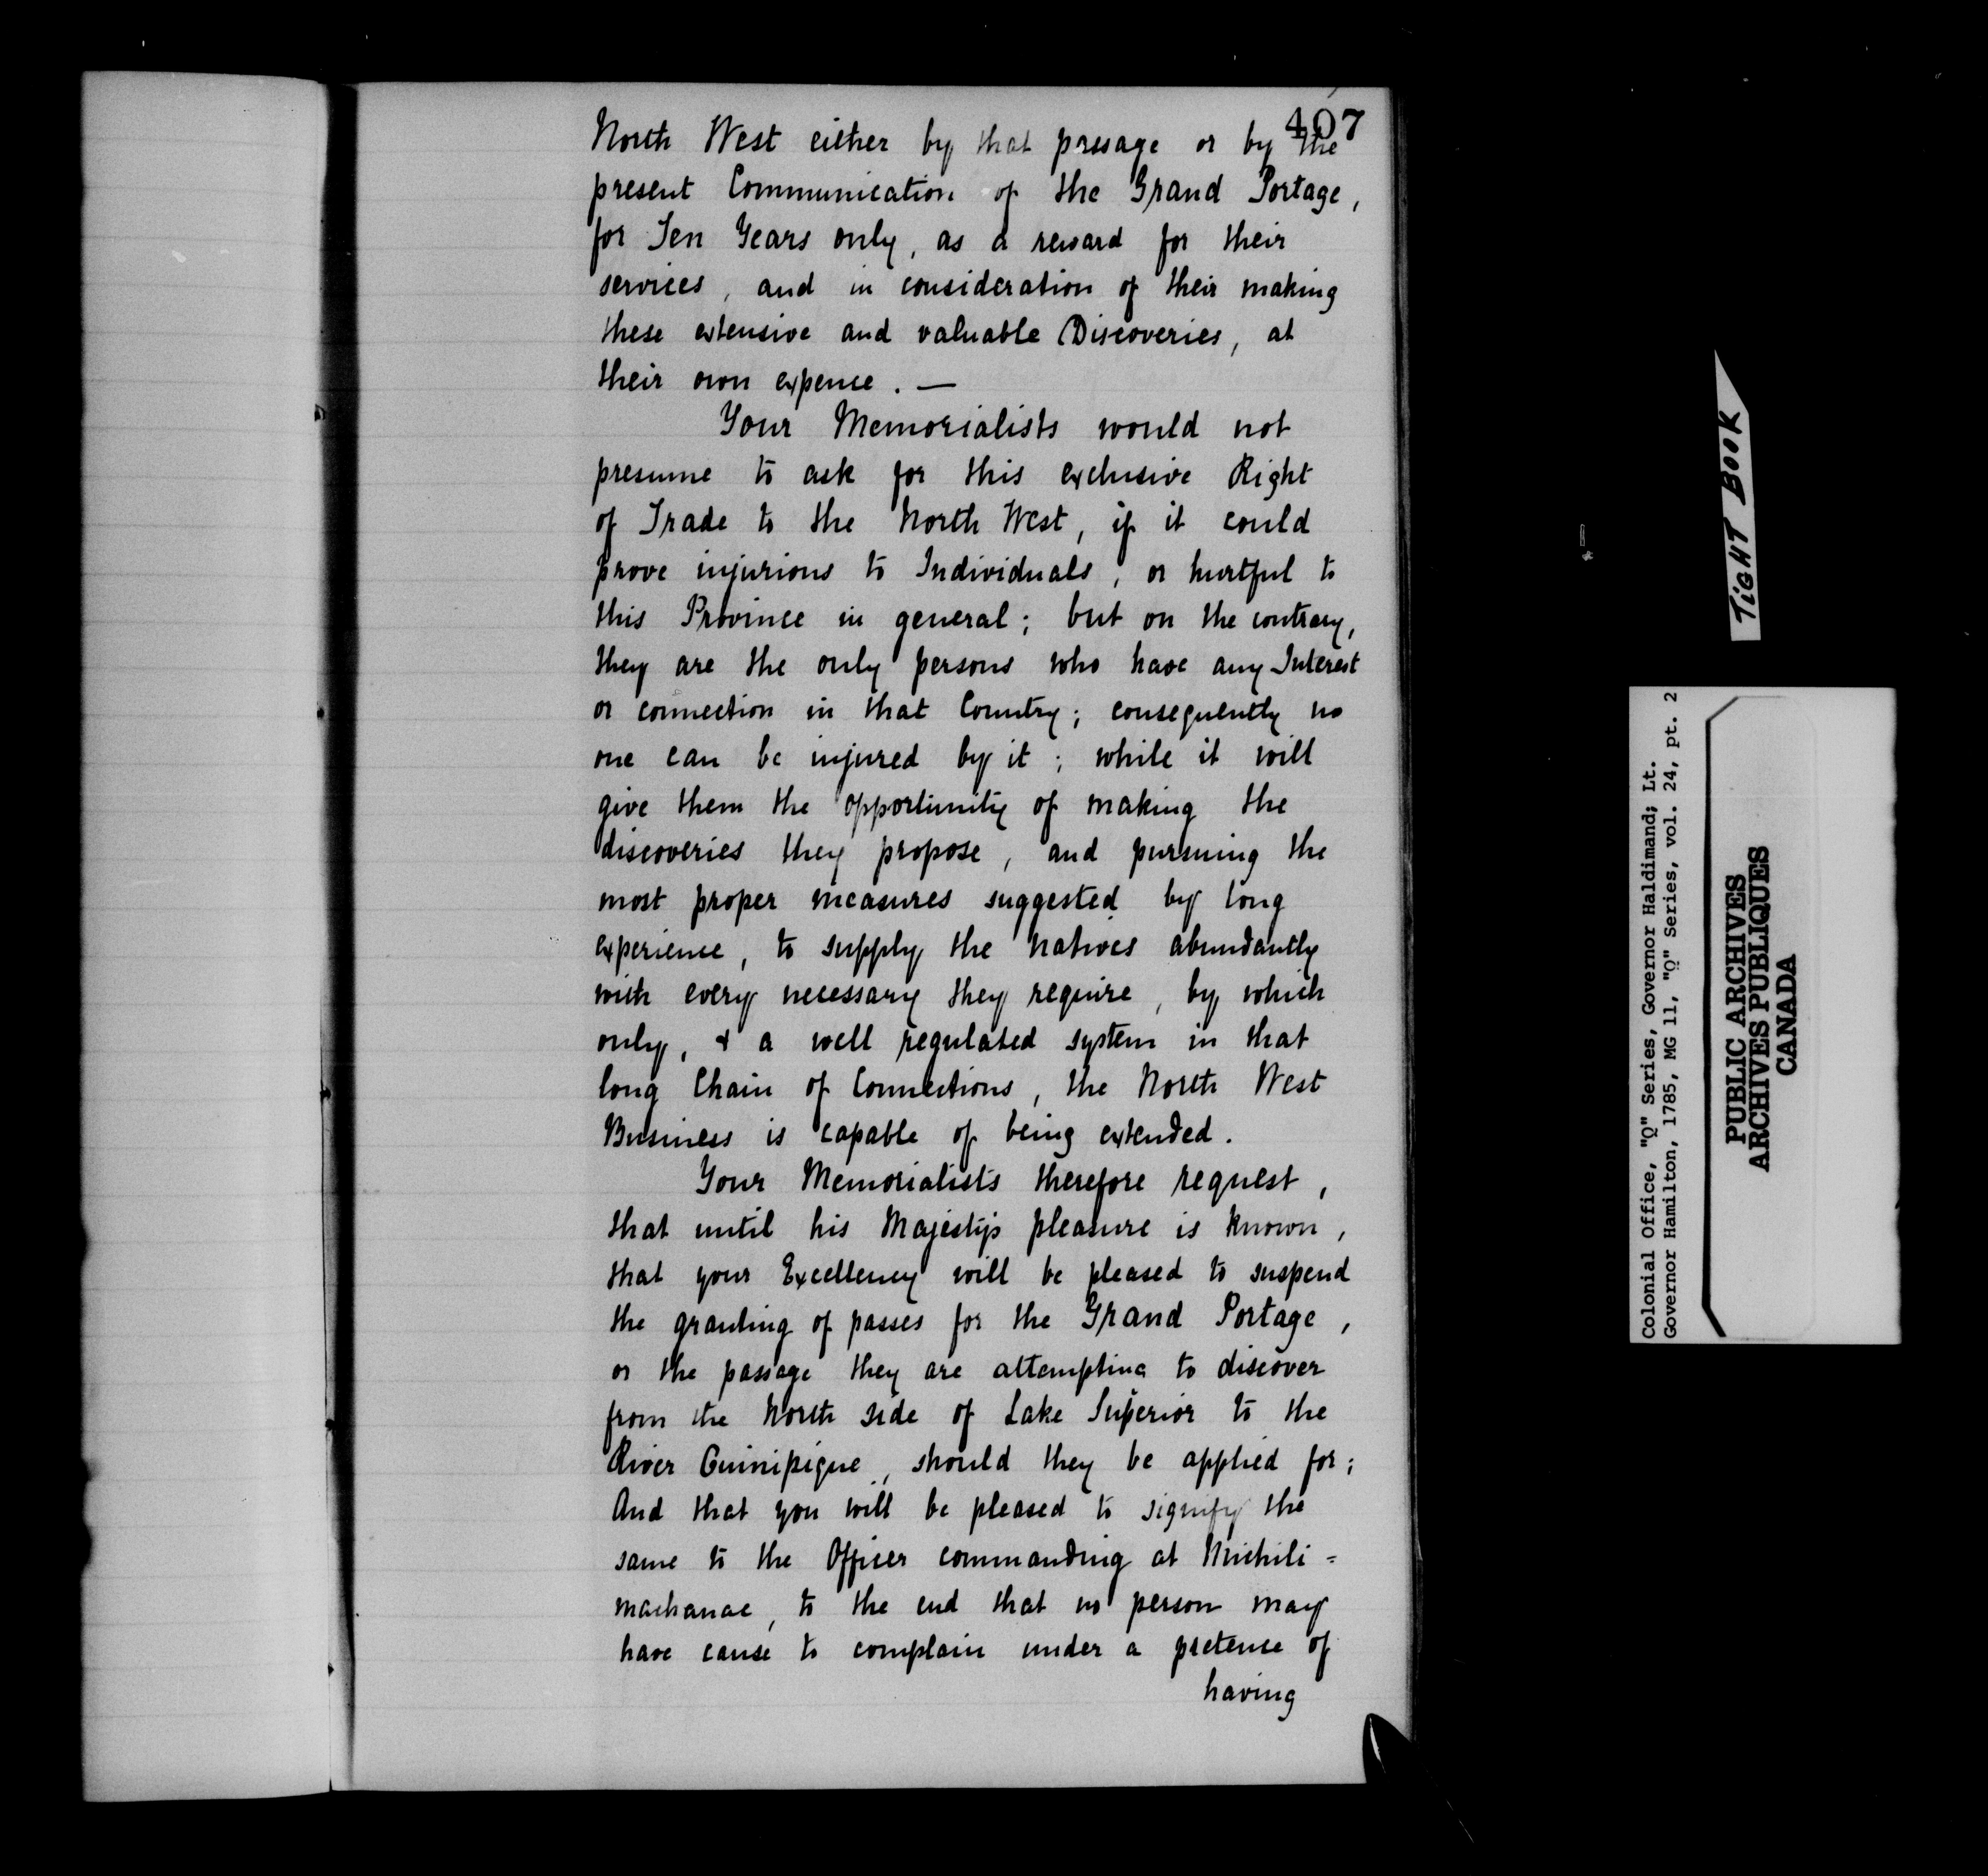 407
North West either by that passage or by the
present Communication of the Grand Portage,
for Ten Years only, as a reward for their
services, and in consideration of their making
these extensive and valuable Discoveries, at
their own expence. —
Your Memorialists would not
presume to ask for this exclusive Right
of Trade to the North West, if it could
prove injurious to Individuals, or hurtful to
this Province in general; but on the contrary,
they are the only persons who have any Interest
or connection in that Country; consequently no
one can be injured by it; while it will
give them the opportunity of making the
discoveries they propose, and pursuing the
most proper measures suggested by long
experience, to supply the natives abundantly
with every necessary they require, by which
only, & a well regulated system in that
long Chain of Connections, the North West
Business is capable of being extended.
Your Memorialists therefore request,
that until his Majesty's pleasure is known,
that your Excellency will be pleased to suspend
the granting of passes for the Grand Portage,
or the passage they are attempting to discover
from the North side of Lake Superior to the
River Ouinipique, should they be applied for;
And that you will be pleased to signify the
same to the Officer commanding at Michili=
machanac, to the end that no person may
have cause to complain under a pretence of
having
TIGHT BOOK
Colonial Office, "Q" Series, Governor Haldimand; Lt.
Governor Hamilton, 1785, MG 11, "Q" Series, vol. 24, pt. 2
PUBLIC ARCHIVES
ARCHIVES PUBLIQUES
CANADA